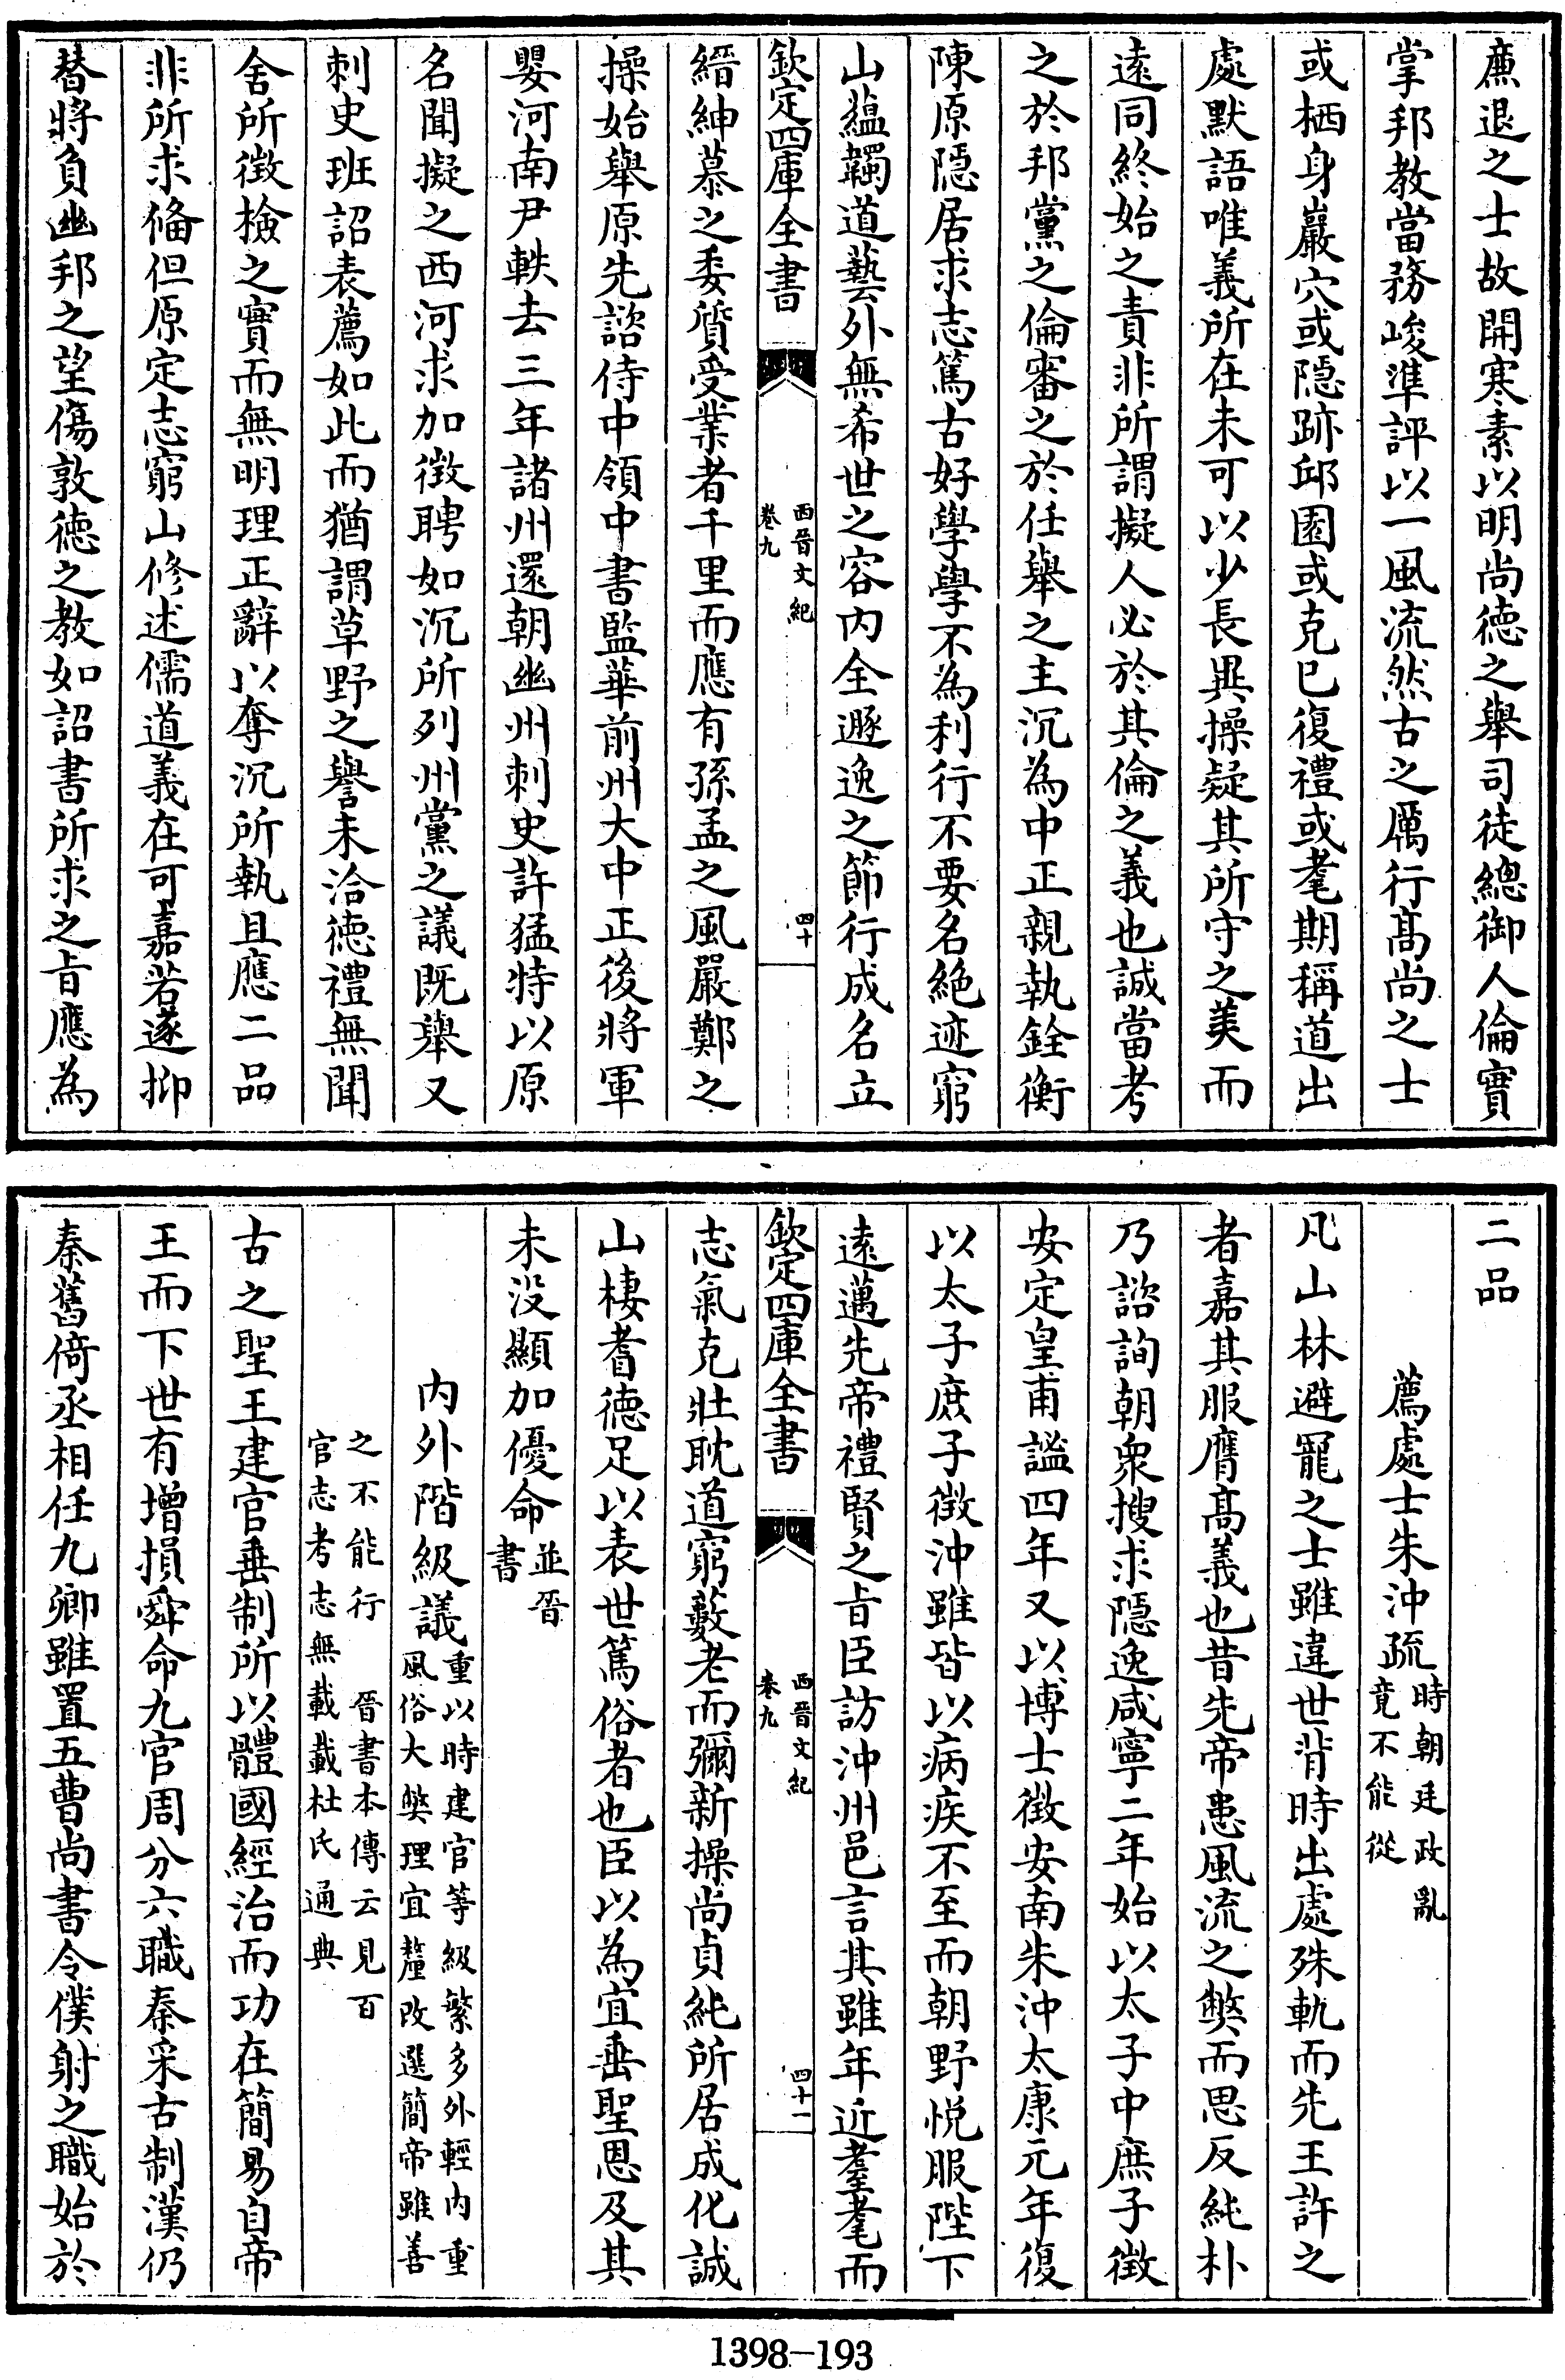 廉退之士故開寒素以明尚徳之舉司徒總御人倫實
掌邦教當務峻準評以一風流然古之厲行髙尚之士
或栖身巖穴或隠跡邱園或克已復禮或耄期稱道出
處默語唯義所在未可以少長異操疑其所守之美而
遠同終始之責非所謂擬人必於其倫之義也誠當考
之於邦黨之倫審之於任舉之主沉為中正親執銓衡
陳原隠居求志篤古好學學不為利行不要名絶迹窮
山藴韣道藝外無希世之容内全遯逸之節行成名立
欽定四庫全書
西晉文紀
卷九
四十
縉紳慕之委質受業者千里而應有孫孟之風嚴鄭之
操始舉原先諮侍中領中書監華前州大中正後將軍
嬰河南尹軼去三年諸州還朝幽州刺史許猛特以原
名聞擬之西河求加徴聘如沉所列州黨之議既舉又
刺史班詔表薦如此而猶謂草野之譽未洽徳禮無聞
舍所徴檢之實而無明理正辭以奪沉所執且應二品
非所求僃但原定志窮山修述儒道義在可嘉若遂抑
替將負幽邦之望傷敦徳之教如詔書所求之㫖應為
二品
薦處士朱沖疏時朝廷政亂
竟不能從
凡山林避寵之士雖違世背時出處殊軌而先王許之
者嘉其服膺髙義也昔先帝患風流之弊而思反純朴
乃諮詢朝衆搜求隠逸咸寧二年始以太子中庶子徴
安定皇甫謐四年又以博士徴安南朱沖太康元年復
以太子庶子徴沖雖皆以病疾不至而朝野悦服陛下
遠邁先帝禮賢之㫖臣訪沖州邑言其雖年近耋耄而
欽定四庫全書
西晉文紀
卷九
四十一
志氣克壯耽道窮藪老而彌新操尚貞純所居成化誠
山棲耆徳足以表世篤俗者也臣以為宜垂聖恩及其
未没顯加優命並晉
書
内外階級議重以時建官等級繁多外輕内重
風俗大弊理宜釐改選簡帝雖善
之不能行　晉書本傳云見百
官志考志無載載杜氏通典
古之聖王建官垂制所以體國經治而功在簡易自帝
王而下世有增損舜命九官周分六職秦采古制漢仍
秦舊倚丞相任九卿雖置五曹尚書令僕射之職始於
1398-193